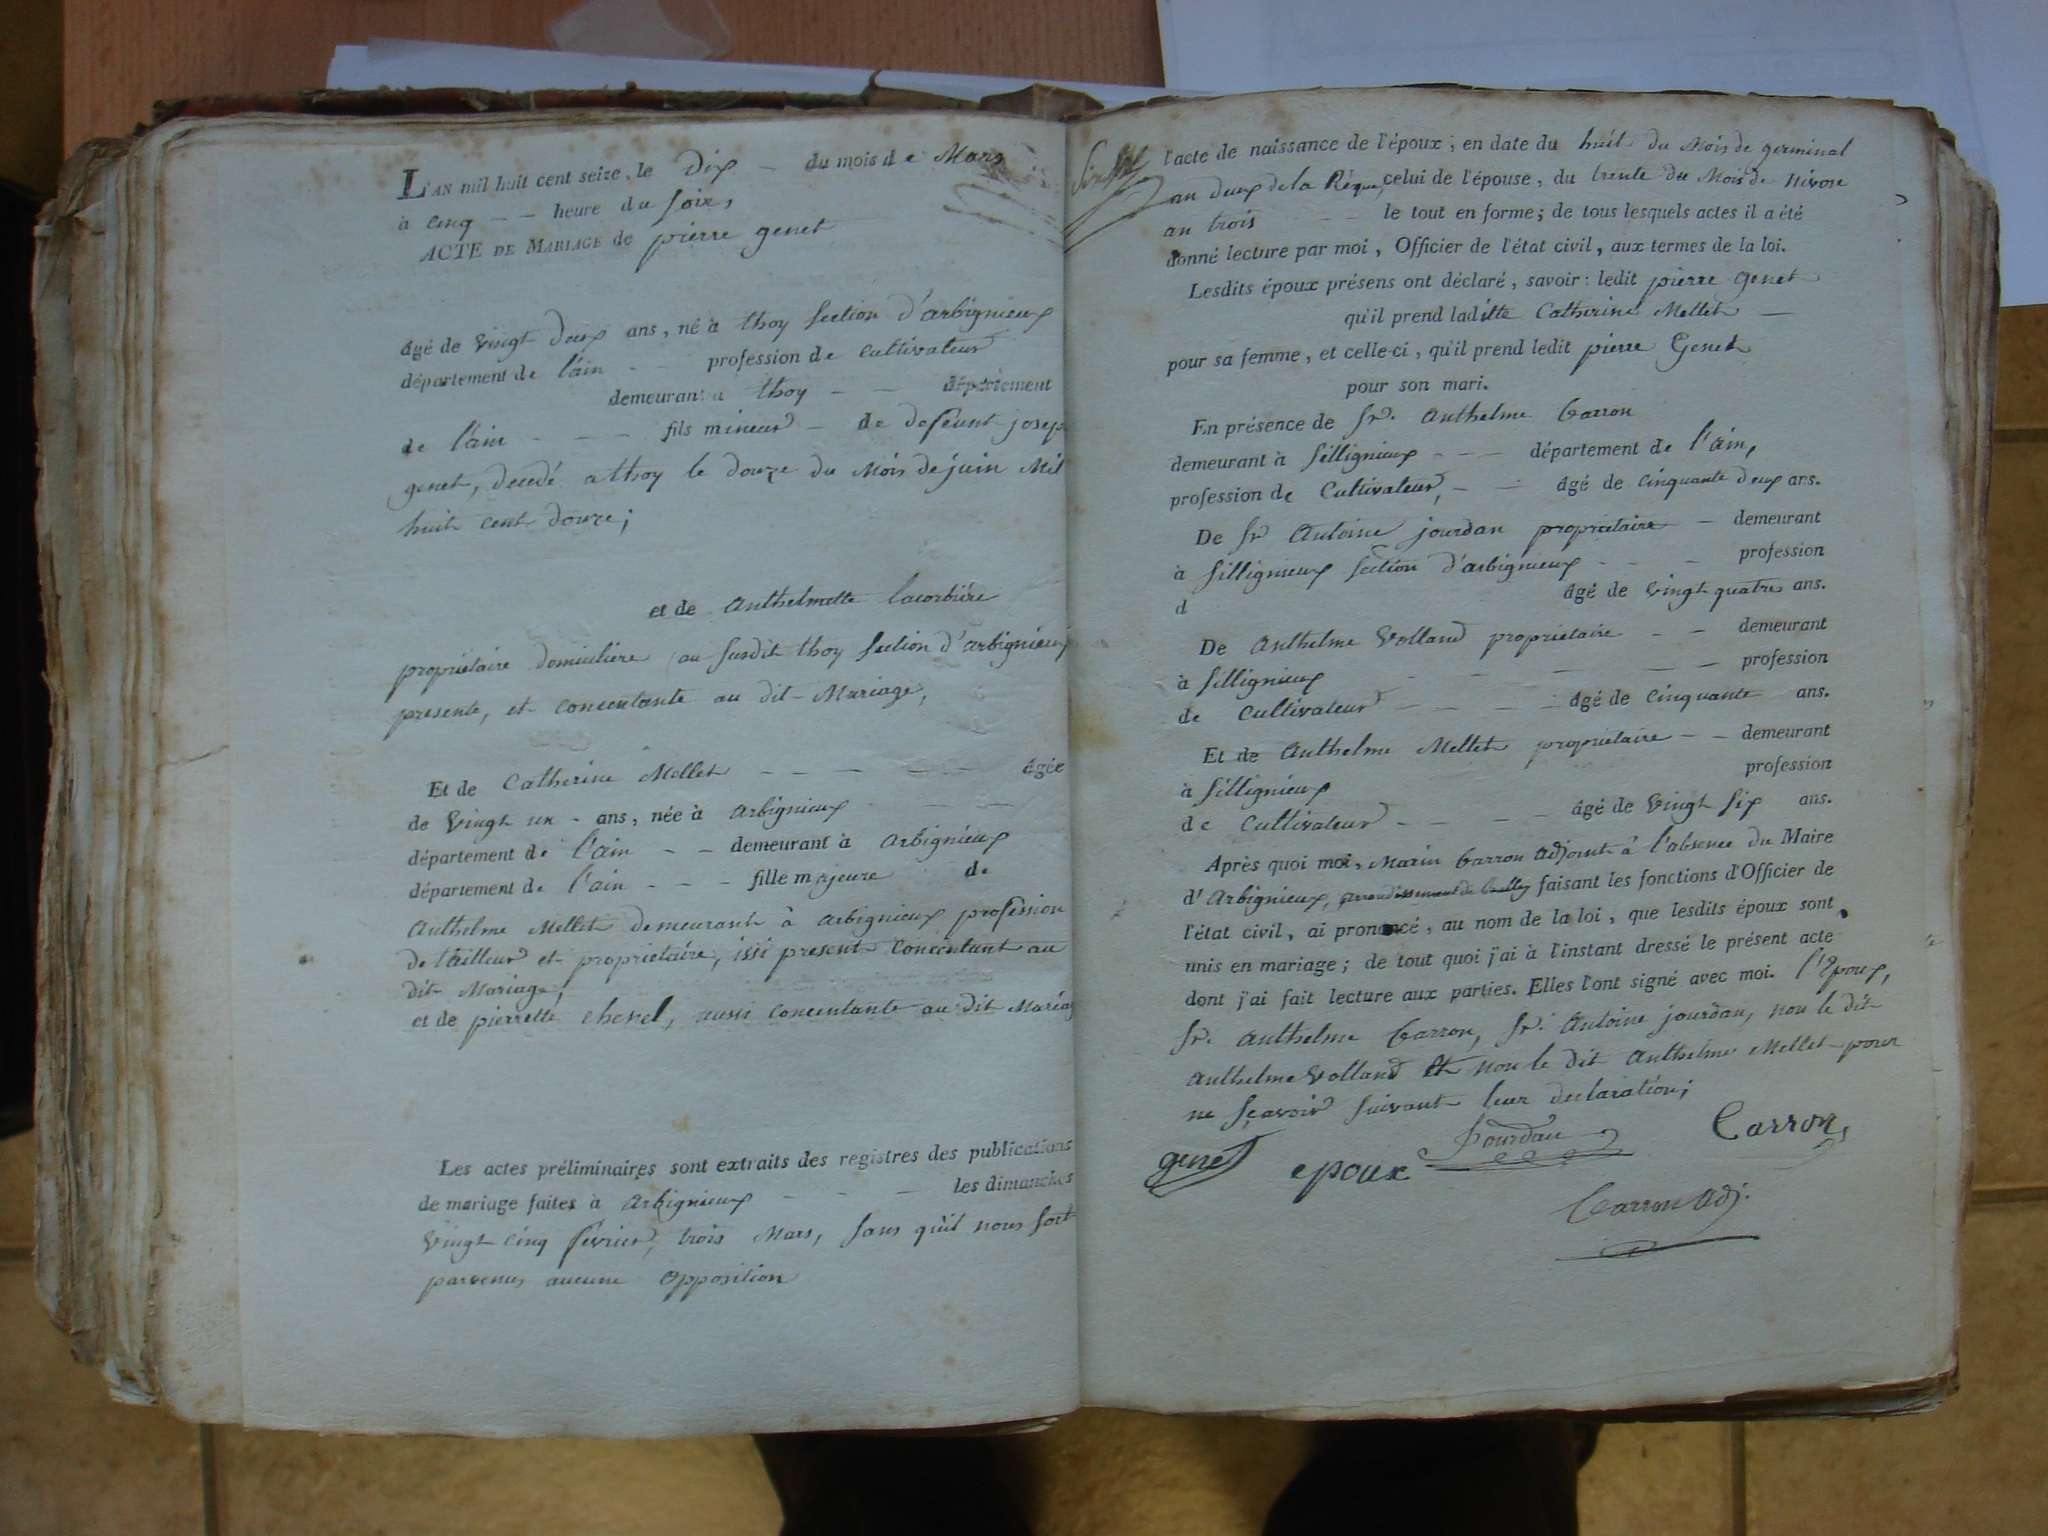 L'AN mil huit cent seize, le Dix - du mois de Mars
à cinq - - heure du soir,
ACTE DE MARIAGE de pierre genet
âgé de vingt deux ans, né à thoy section d'arbignieux
département de l'ain - - profession de cultivateur
demeurant a thoy - - département
de l'ain - - - fils mineur - de defeunt josep
genet, decedé a thoy le douze du Mois de juin Mil
huit cent douze;
et de anthelmette lacorbiére
proprietaire domiciliere au susdit thoy section d'arbignieux
presente, et concentante au dit Mariage,
Et de Catherine Mellet - - - - - - âgée
de vingt un - ans, née à arbignieux - - -
département de l'ain - - demeurant à arbignieux
département de l'ain - - - fille majeure de
anthelme Mellet demeurant à arbignieux profession
de tailleur et proprietaire, issi present concentant au
dit Mariage,
et de pierrette chevel, aussi concentante au dit Mariag
Les actes préliminaires sont extraits des registres des publications
de mariage faites à arbignieux - - - - les dimanches
vingt cinq fevrier, trois Mars, sans qu'il nous soit
parvenus aucune opposition
l'acte de naissance de l'époux; en date du huit du Mois de germinal
an deux de la Réque, celui de l'épouse, du trente du Mois de Nivose
an trois - - le tout en forme; de tous lesquels actes il a été
donné lecture par moi, Officier de l'état civil, aux termes de la loi.
Lesdits époux présens ont déclaré, savoir: ledit pierre genet
qu'il prend ladite Catherine Mellet -
pour sa femme, et celle-ci, qu'il prend ledit pierre Genet
pour son mari.
En présence de Sr. anthelme Carron
demeurant à Sillignieux - - - département de l'ain,
profession de Cultivateur, - - âgé de cinquante deux ans.
De Sr antoine jourdan proprietaire - demeurant
à Sillignieux section d'arbignieux - - - profession
d âgé de vingt quatre ans.
De anthelme Volland proprietaire - - demeurant
à Sillignieux - - - - - profession
de cultivateur - - - - âgé de cinquante ans.
Et de anthelme Mellet proprietaire - - demeurant
à Sillignieux profession
de cultivateur - - - - âgé de vingt six ans.
Après quoi moi, Marin Carron adjoint à l'absence du Maire
d'Arbignieux, arrondissement de Belley faisant les fonctions d'Officier de
l'état civil, ai prononcé, au nom de la loi, que lesdits époux sont
unis en mariage; de tout quoi j'ai à l'instant dressé le présent acte
dont j'ai fait lecture aux parties. Elles l'ont signé avec moi. l'Epoux,
Sr. anthelme Carron, Sr. antoine jourdan, non le dit
anthelme Volland et non le dit anthelme Mellet pour
ne sçavoir suivant leur declaration;
genet epoux Jourdan Carron,
Carron adj.